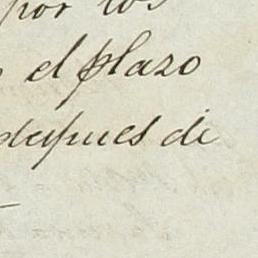 por los
el plazo
despues de